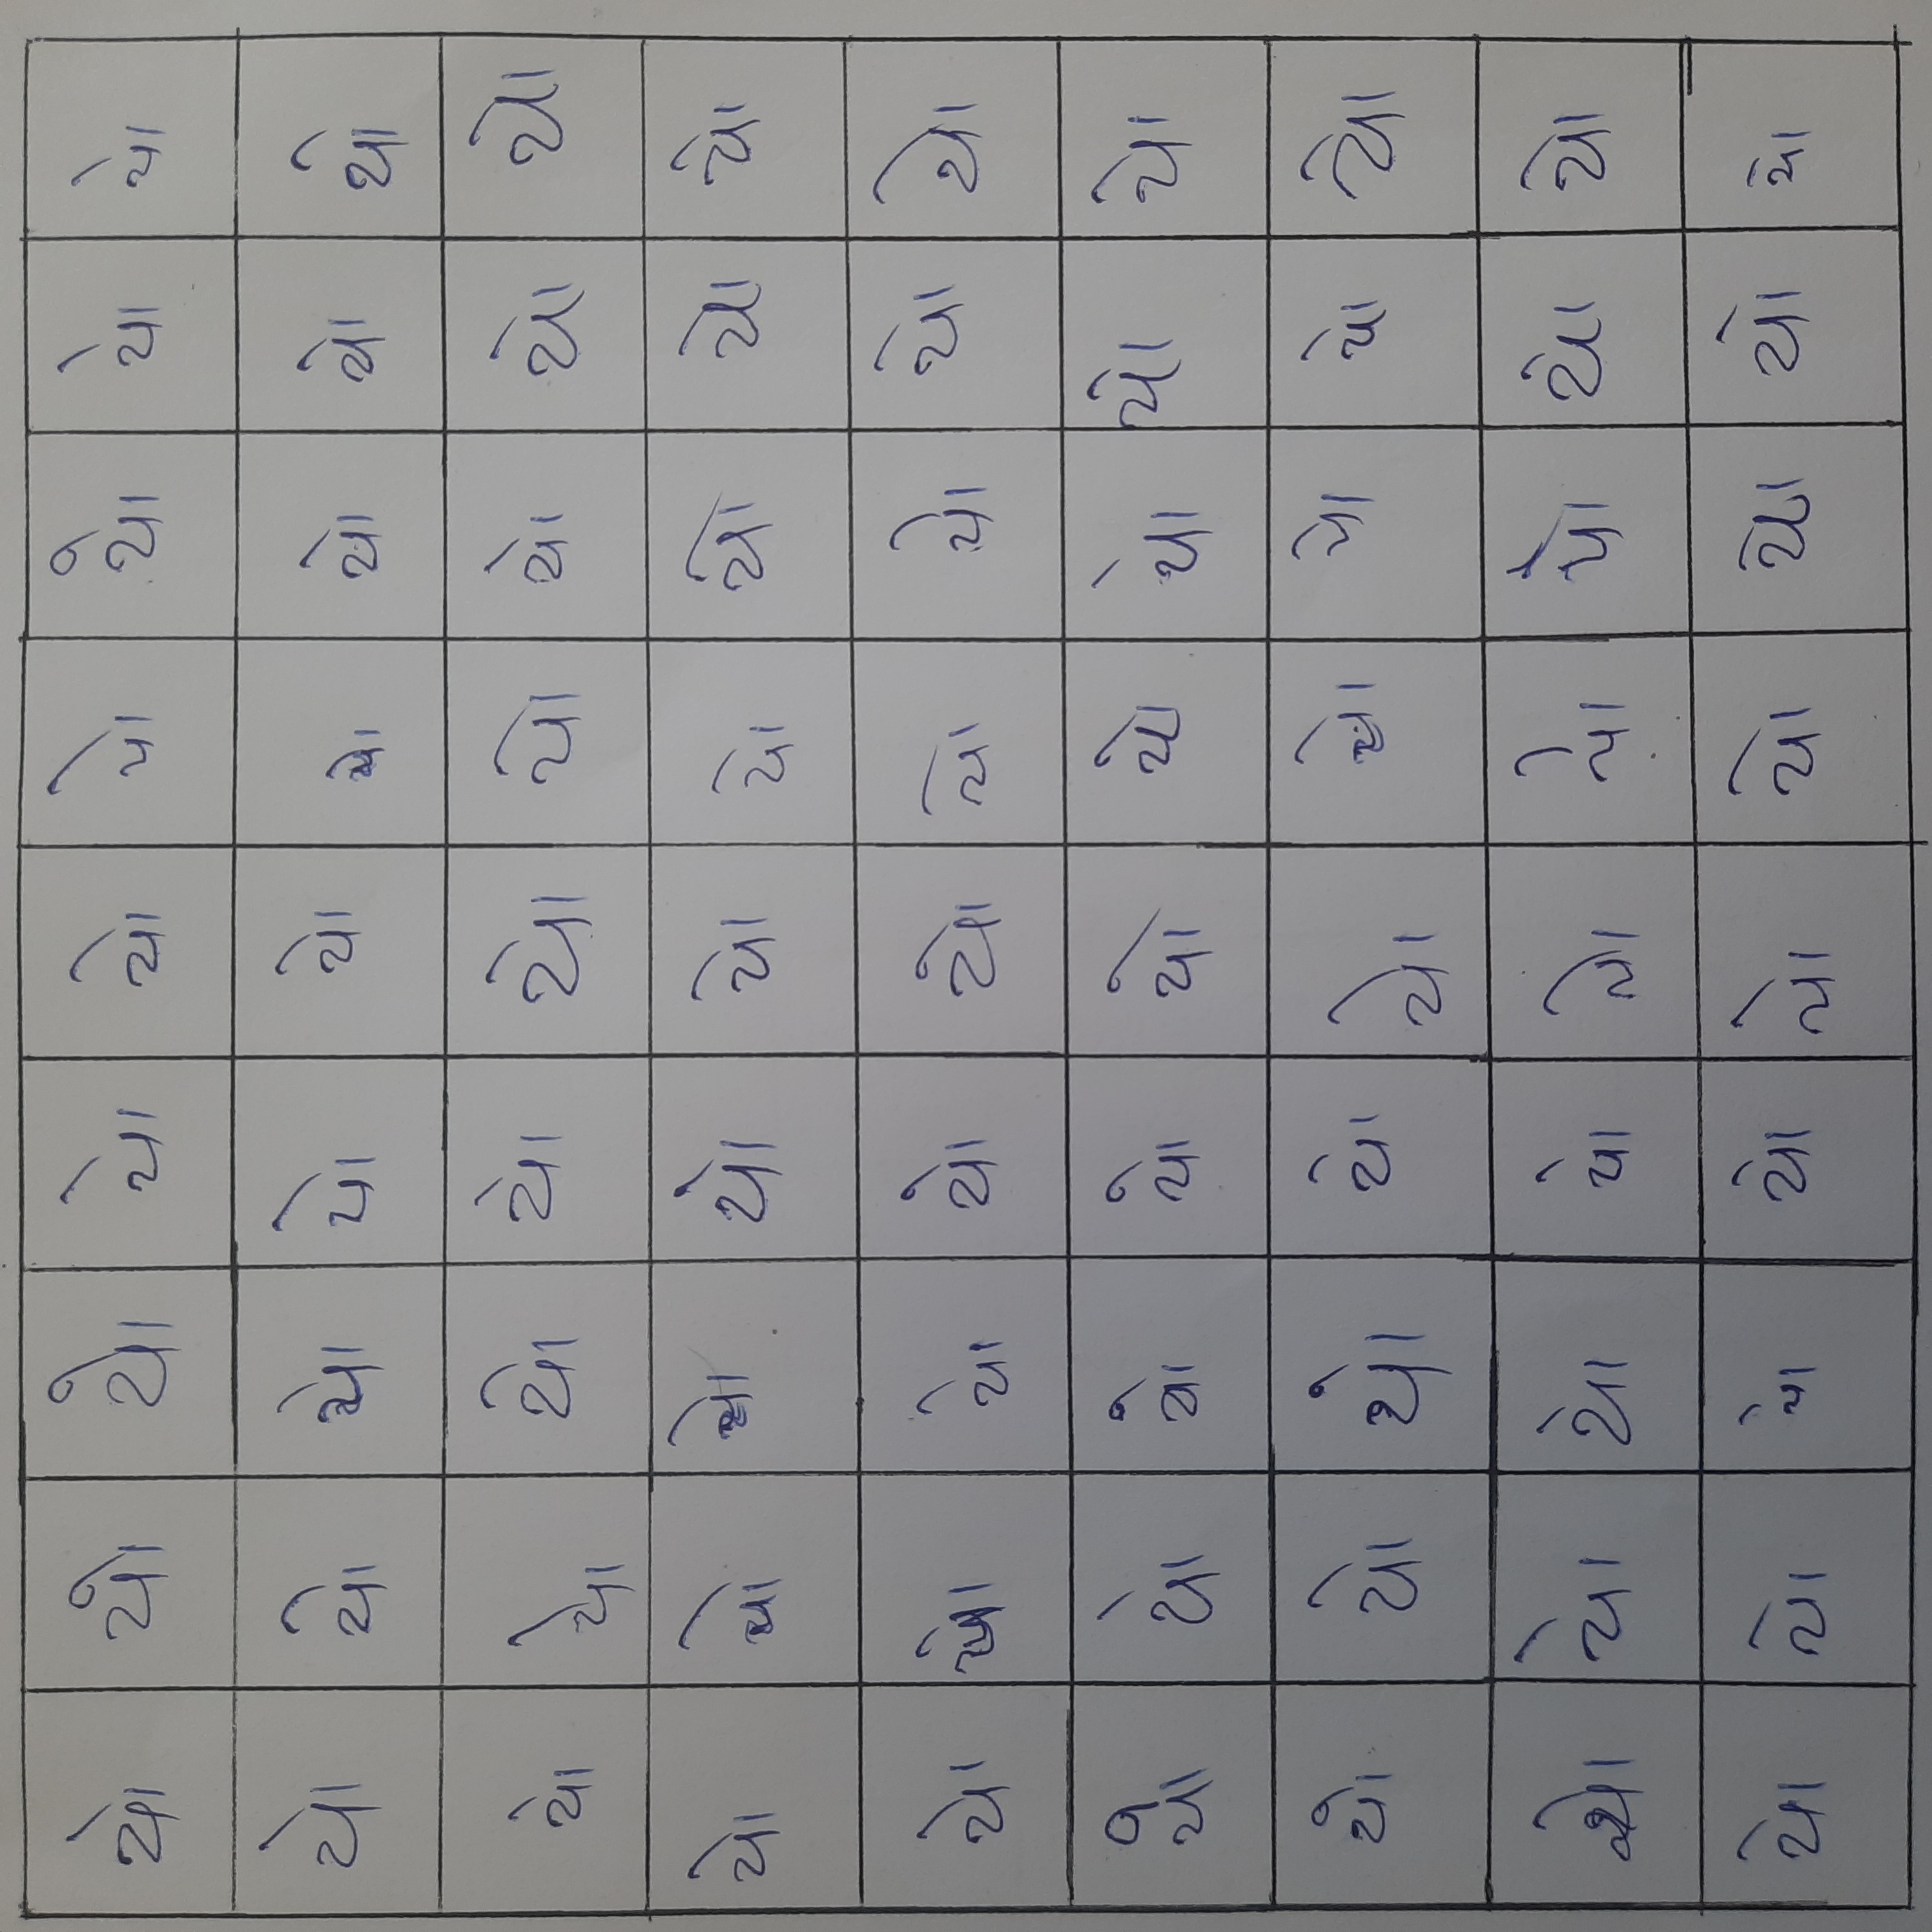 યો યો યો યો યો યો યો યો યો
યો યો યો યો યો યો યો યો યો
યો યો યો યો યો યો યો યો યો
યો યો યો યો યો યો યો યો યો
યો યો યો યો યો યો યો યો યો
યો યો યો યો યો યો યો યો યો
યો યો યો યો યો યો યો યો યો
યો યો યો યો યો યો યો યો યો
યો યો યો યો યો યો યો યો યો